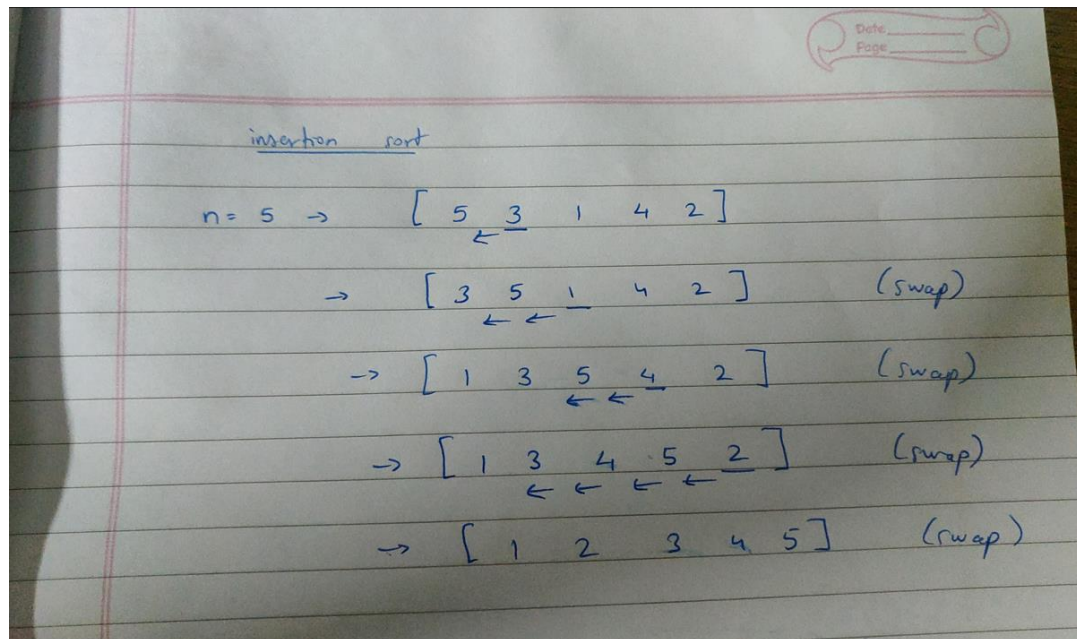 Date
Page
insertion sort
n = 5 → [ 5 3 1 4 2 ]
←
→ [ 3 5 1 4 2 ] (swap)
← ←
→ [ 1 3 5 4 2 ] (swap)
← ←
→ [ 1 3 4 5 2 ] (swap)
← ← ← ←
→ [ 1 2 3 4 5 ] (swap)